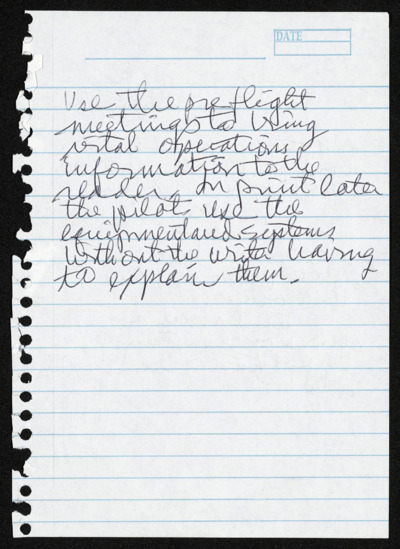 DATE
Use the preflight
meetings to bring
vital operations
information to the
reader. In print later
the pilots use the
equipment and systems
without the writer having
to explain them.